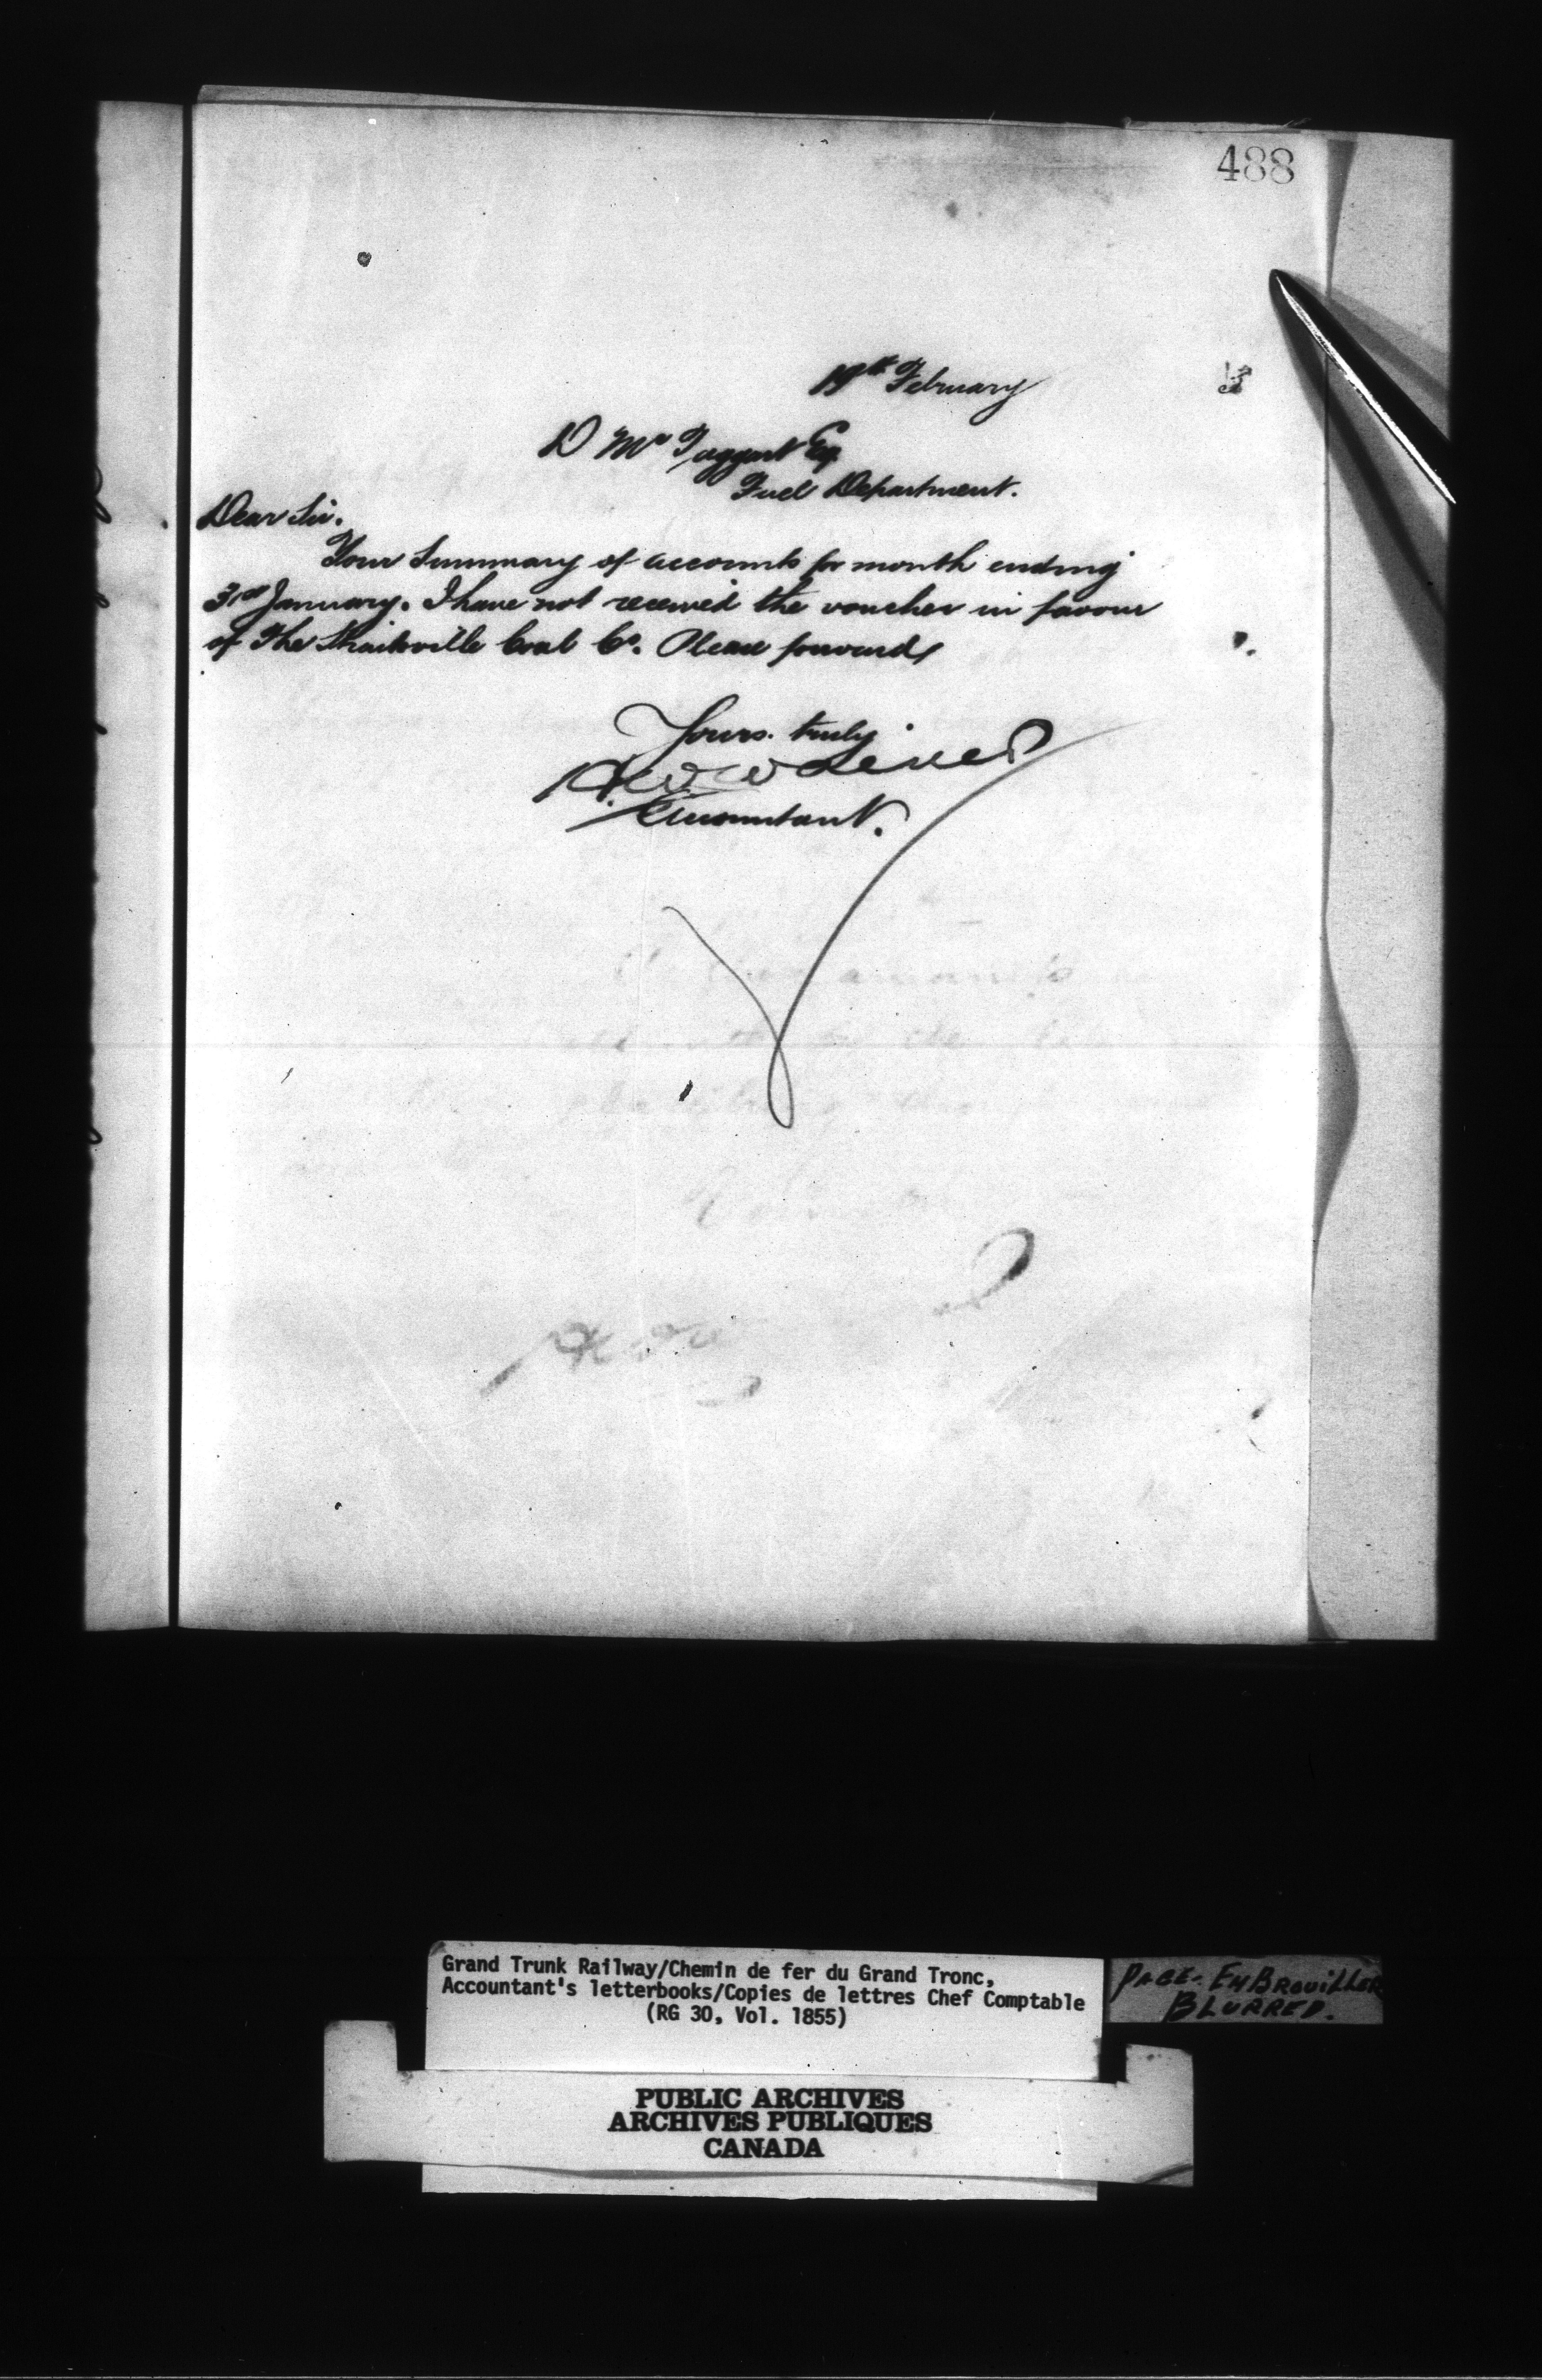 488
19th February
D McTaggart Esq
Fuel Department.
Dear Sir.
Your Summary of accounts for month ending
31st January. I have not received the voucher in favour
of The Coal Co. Please forward
Yours truly
Accountant.
Grand Trunk Railway/Chemin de fer du Grand Tronc,
Accountant's letterbooks/Copies de lettres Chef Comptable
(RG 30, Vol. 1855)
PAGE- EMBROUILLER
BLURRED.
PUBLIC ARCHIVES
ARCHIVES PUBLIQUES
CANADA